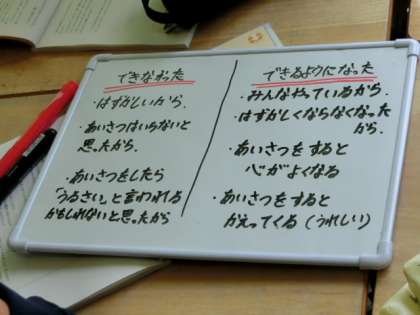 できなかった
・はずかしいから。
・あいさつはいらないと
思ったから。
・あいさつをしたら
「うるさい」と言われる
かもしれないと思ったから
できるようになった
・みんなやっているから。
・はずかしくならなくなった
から。
・あいさつをすると
心がよくなる
・あいさつをすると
かえってくる（うれしい）